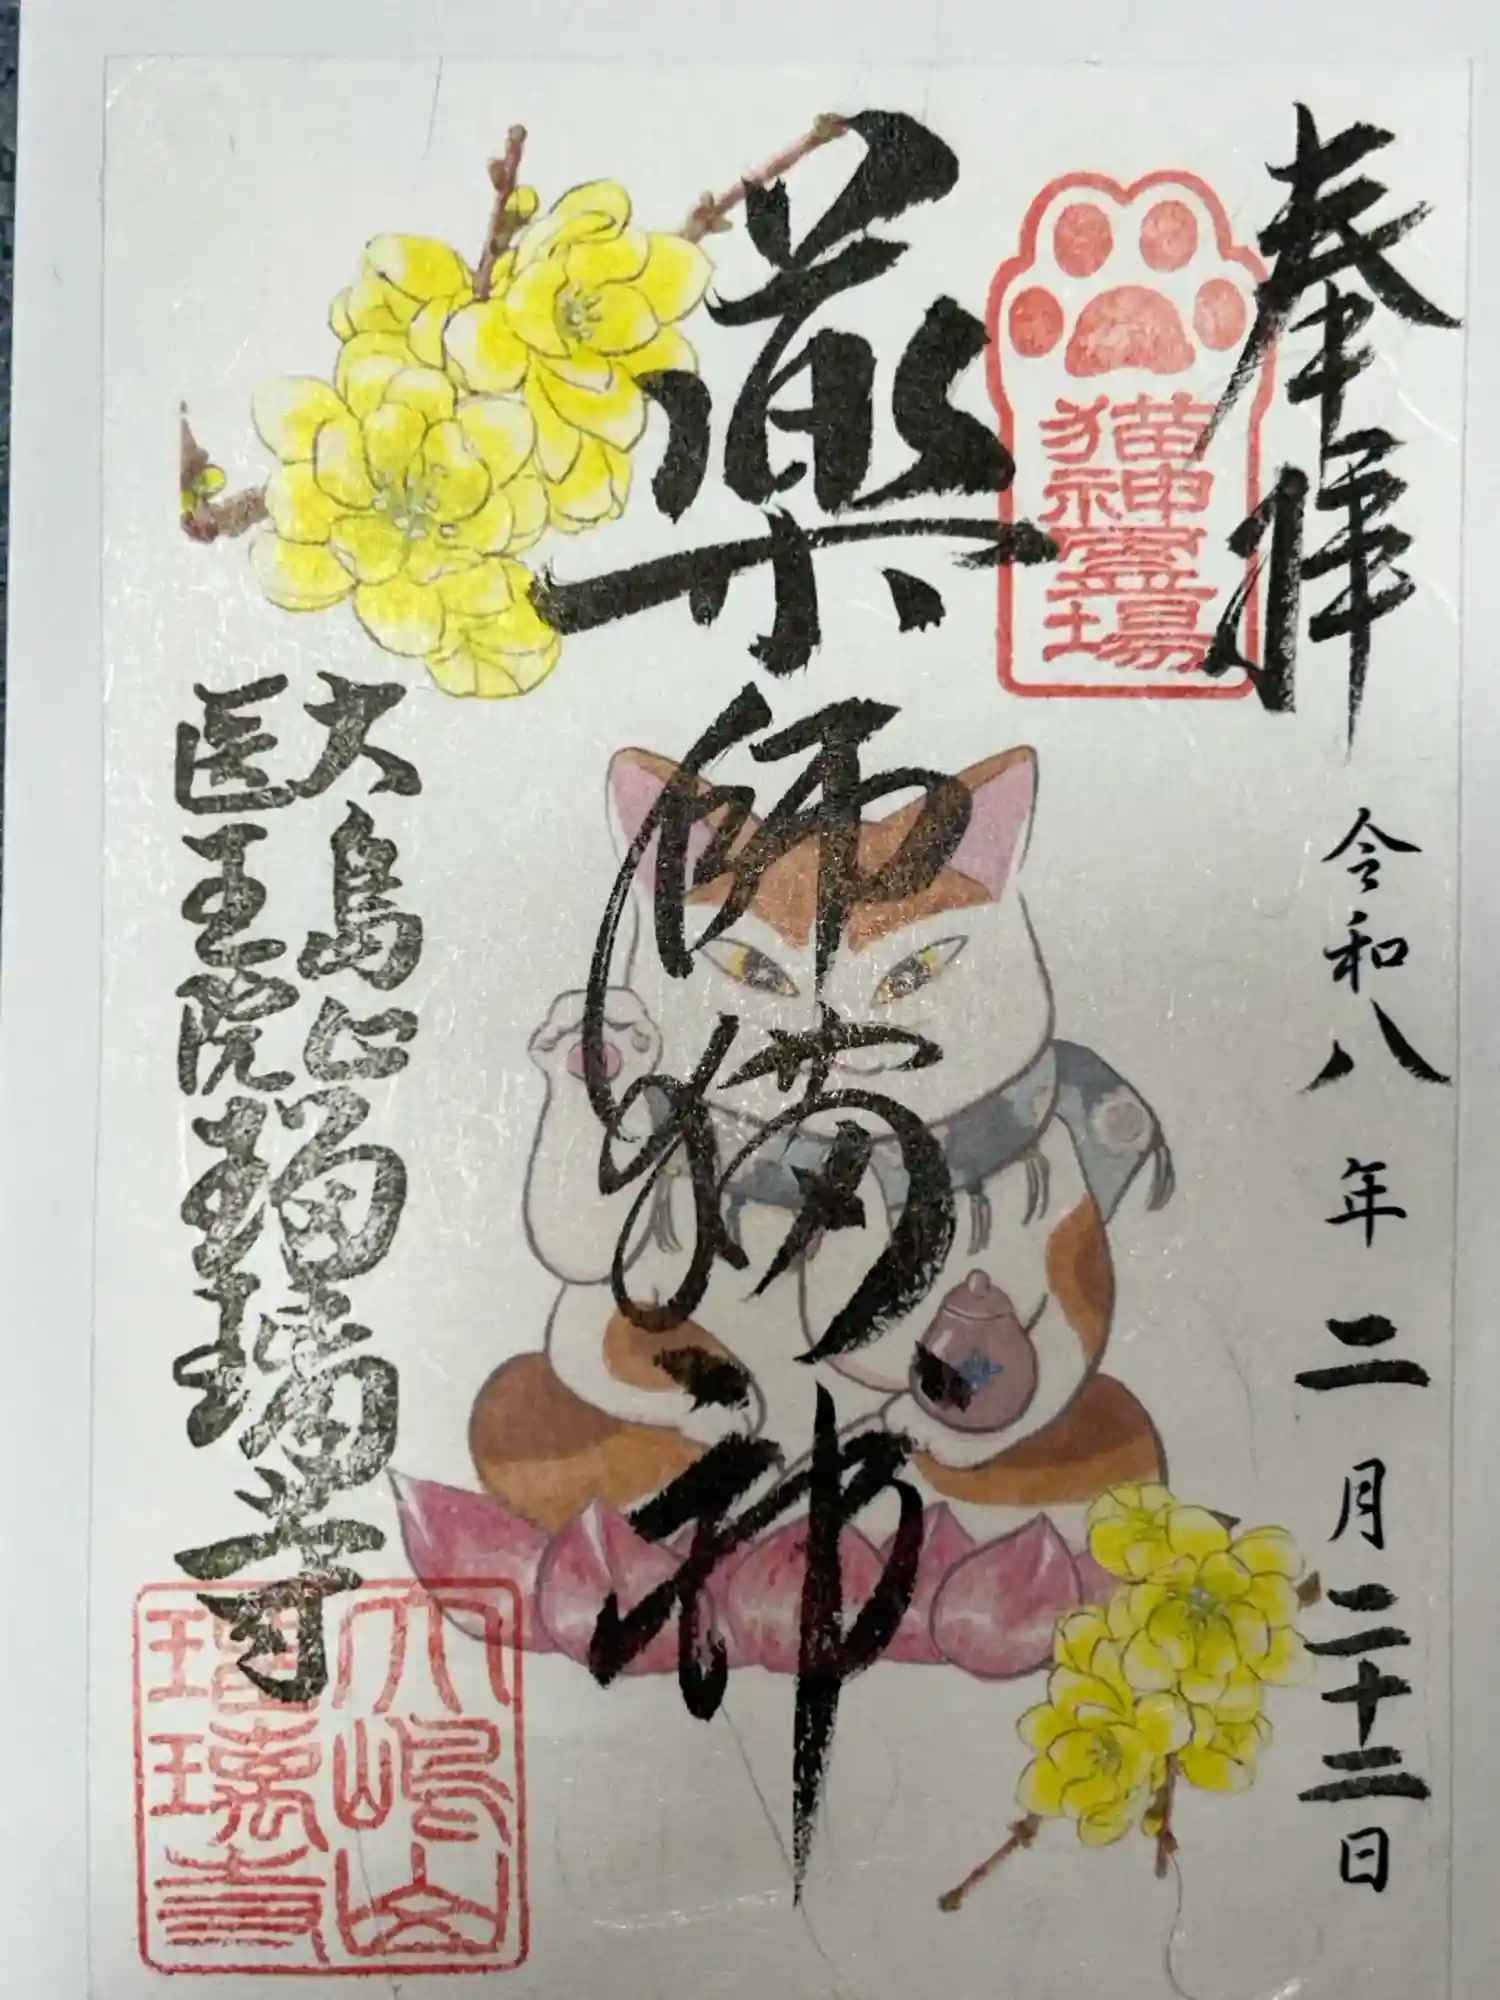 奉拝
令和八年二月二十二日
猫神
霊場
薬師猫神
大島山
医王院瑠璃寺
大嶋山
瑠璃寺